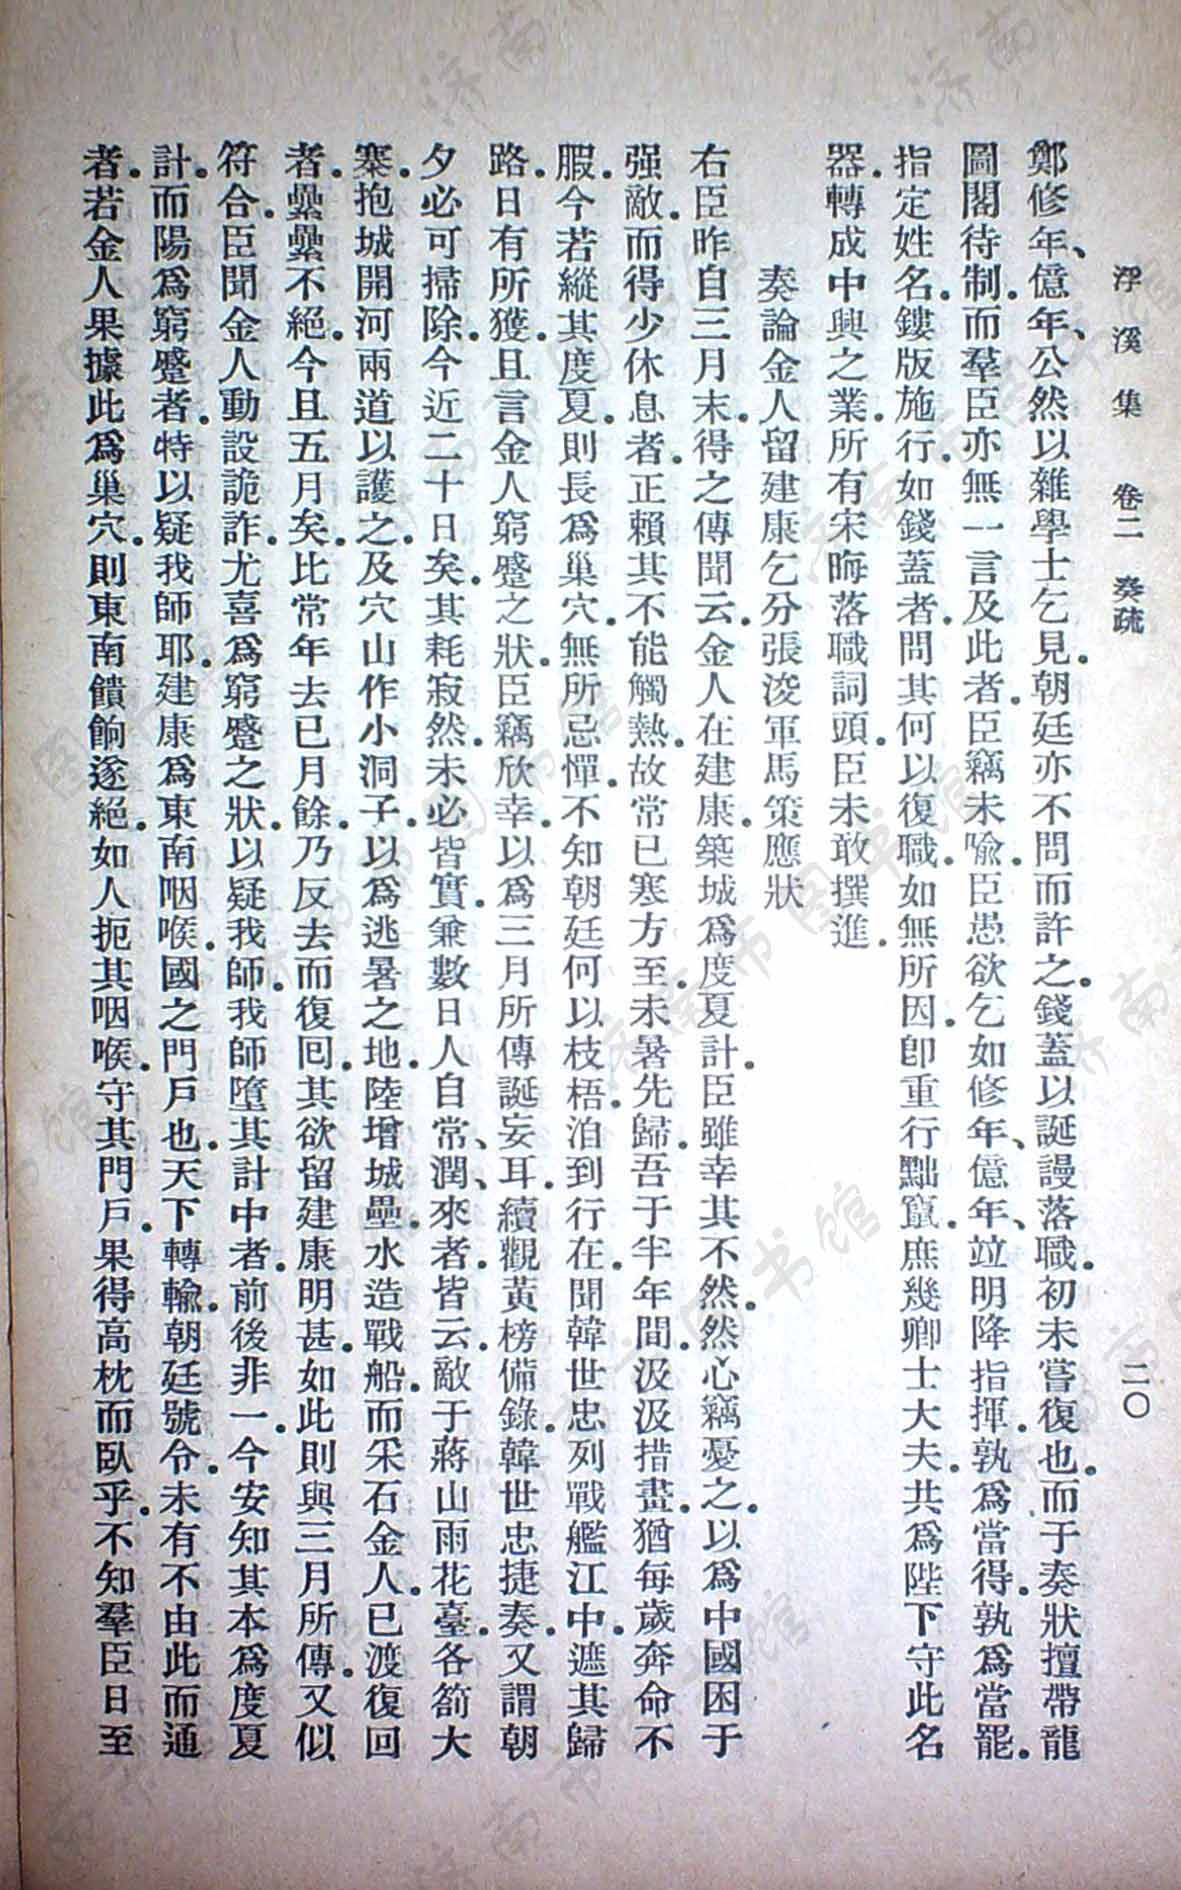 浮溪集 卷二 奏疏 二〇
鄭修年、億年、公然以雜學士乞見。朝廷亦不問而許之。錢蓋以誕謾落職。初未嘗復也。而于奏狀擅帶龍
圖閣待制。而羣臣亦無一言及此者。臣竊未喩。臣愚欲乞如修年、億年、竝明降指揮。孰爲當得。孰爲當罷。
指定姓名。鏤版施行。如錢蓋者。問其何以復職。如無所因。卽重行黜竄。庶幾卿士大夫。共爲陛下守此名
器。轉成中興之業。所有宋晦落職詞頭。臣未敢撰進。
奏論金人留建康乞分張浚軍馬策應狀
右臣昨自三月末。得之傳聞云。金人在建康。築城爲度夏計。臣雖幸其不然。然心竊憂之。以爲中國困于
强敵。而得少休息者。正賴其不能觸熱。故常已寒方至。未暑先歸。吾于半年間。汲汲措畫。猶每歲奔命不
暇。今若縱其度夏。則長爲巢穴。無所忌憚。不知朝廷何以枝梧。洎到行在。聞韓世忠列戰艦江中。遮其歸
路。日有所獲。且言金人窮蹙之狀。臣竊欣幸。以爲三月所傳誕妄耳。續觀黃榜備錄。韓世忠捷奏。又謂朝
夕必可掃除。今近二十日矣。其耗寂然。未必皆實。兼數日人自常、潤、來者。皆云。敵于蔣山雨花臺。各箚大
寨。抱城開河兩道以護之。及穴山作小洞子。以爲逃暑之地。陸增城壘。水造戰船。而采石金人。已渡復回
者。纍纍不絕。今且五月矣。比常年去已月餘。乃反去而復回。其欲留建康明甚。如此則與三月所傳。又似
符合。臣聞金人動設詭詐。尤喜爲窮蹙之狀。以疑我師。我師墮其計中者。前後非一。今安知其本爲度夏
計。而陽爲窮蹙者。特以疑我師耶。建康爲東南咽喉。國之門戶也。天下轉輸。朝廷號令。未有不由此而通
者。若金人果據此爲巢穴。則東南饋餉遂絕。如人扼其咽喉。守其門戶。果得高枕而臥乎。不知羣臣日至